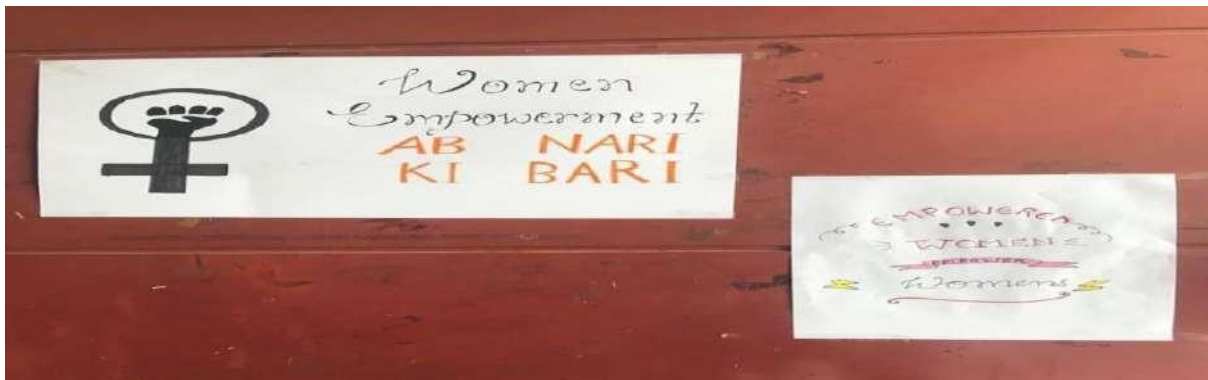 Women
Empowerment
AB NARI
KI BARI
EMPOWERED
WOMEN
EMPOWER
Womens